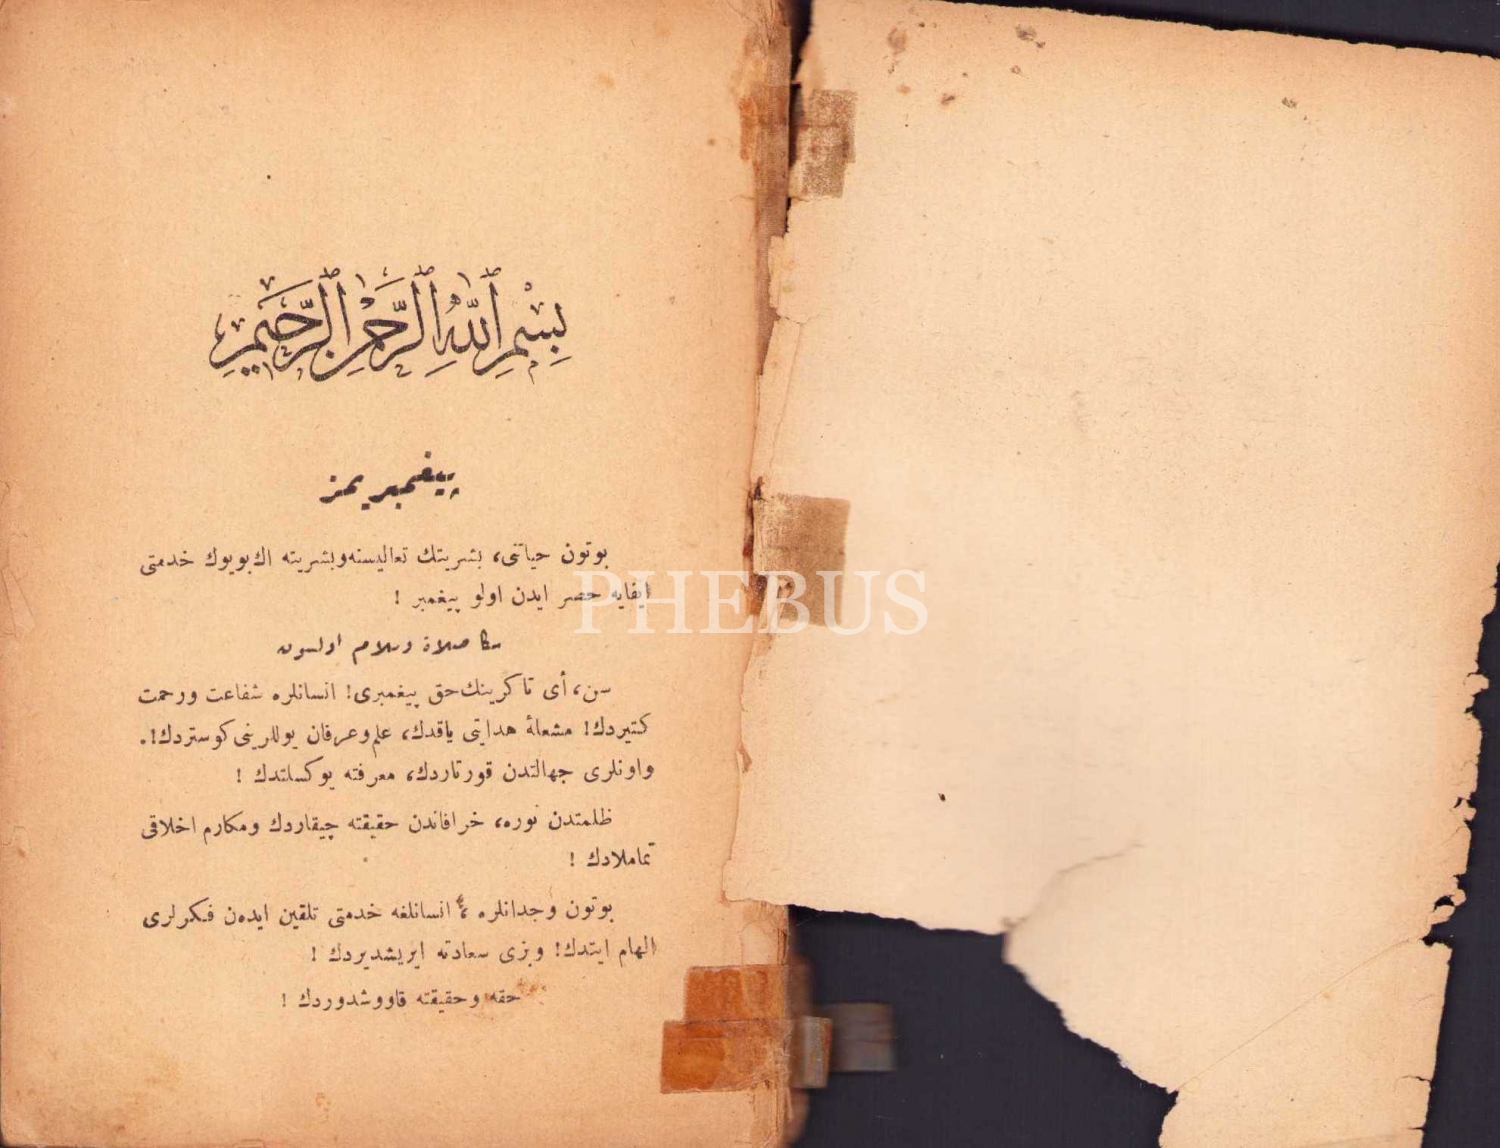 بِسْمِ ٱللّٰهِ ٱلرَّحْمٰنِ ٱلرَّحِيمِ
پيغمبريمز
بوتون حياتنى، بشريتك تعاليسنه وبشريته اك بويوك خدمتى
ايفايه حصر ايدن اولو پيغمبر !
سكا صلاة وسلام اولسون
سن، أى تاكرينك حق پيغمبرى! انسانلره شفاعت ورحمت
كتيردك! مشعلهٔ هدايتى ياقدك، علم وعرفان يوللرينى كوستردك!.
واونلرى جهالتدن قورتاردك، معرفته يوكسلتدك !
ظلمتدن نوره، خرافاتدن حقيقته چيقاردك ومكارم اخلاقى
تماملادك !
بوتون وجدانلره، انسانلغه خدمتى تلقين ايدەن فكرلرى
الهام ايتدك! وبزى سعادته ايريشديردك !
حقه وحقيقته قاووشدوردك !
PHEBUS